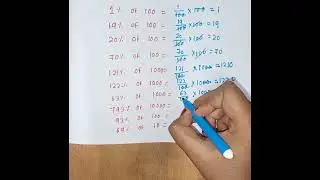 1% of 100 = 1/100 × 100 = 1
19% of 100 = 19/100 × 100 = 19
20% of 100 = 20/100 × 100 = 20
70% of 100 = 70/100 × 100 = 70
121% of 1000 = 121/100 × 1000 = 1210
122% of 1000 = 122/100 × 1000 =
63% of 1000 = 63/100 × 100
793% of 10000 =
93% of 100 =
69% of 10 =